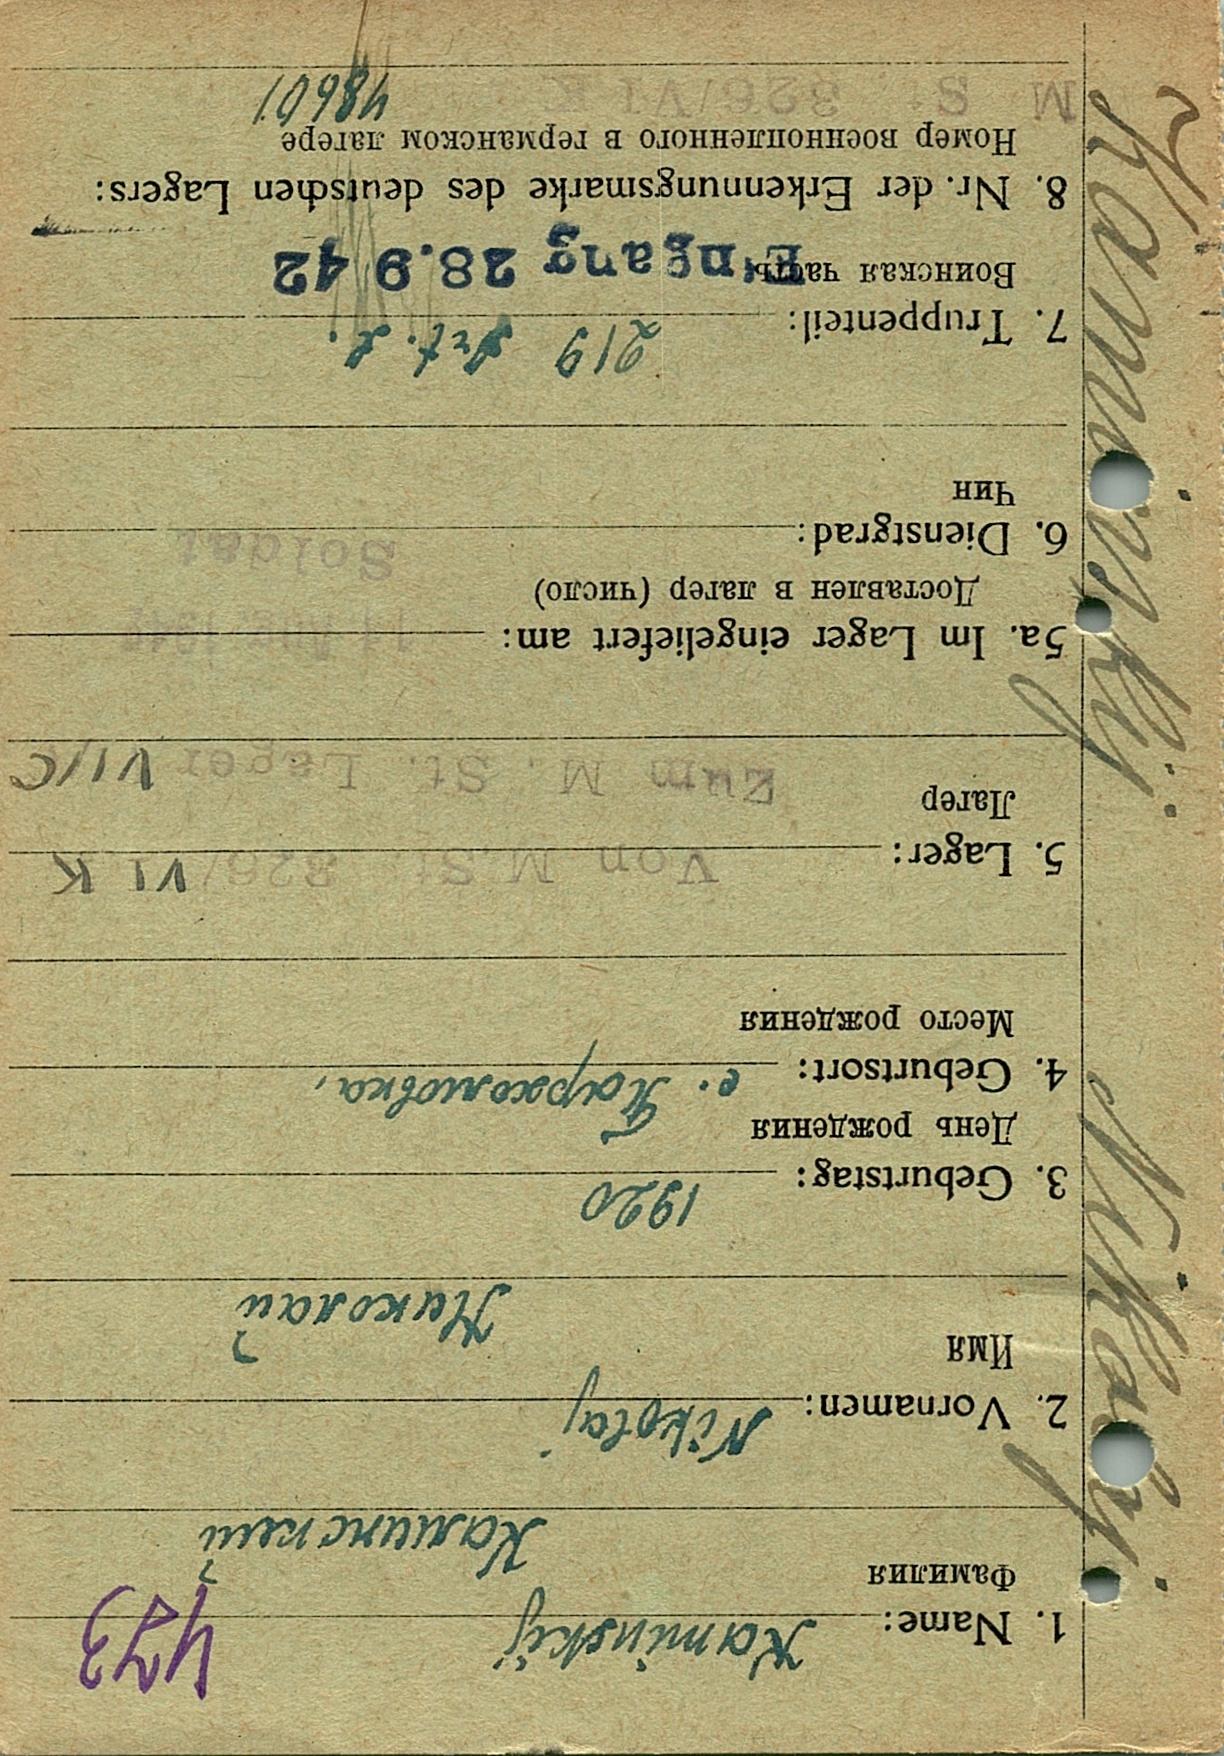 Kaminskij Nikolaj
473
1. Name: Kaminskij
Фамилия Каминский
2. Vornamen: Nikolaj
Имя Николай
3. Geburtstag: 1920
День рождения
4. Geburtsort: с. Пархомовка,
Место рождения
5. Lager: Von M. St. 326/VI K
Лагер
Zum M. St. Lager VI/C
5a. Im Lager eingeliefert am:
Доставлен в лагер (число)
6. Dienstgrad: Soldat
Чин
7. Truppenteil: 219
Воинская часть Eingang 28.9 42
8. Nr. der Erkennungsmarke des deutschen Lagers:
Номер военнопленного в германском лагере
M St 326/VI K 48601